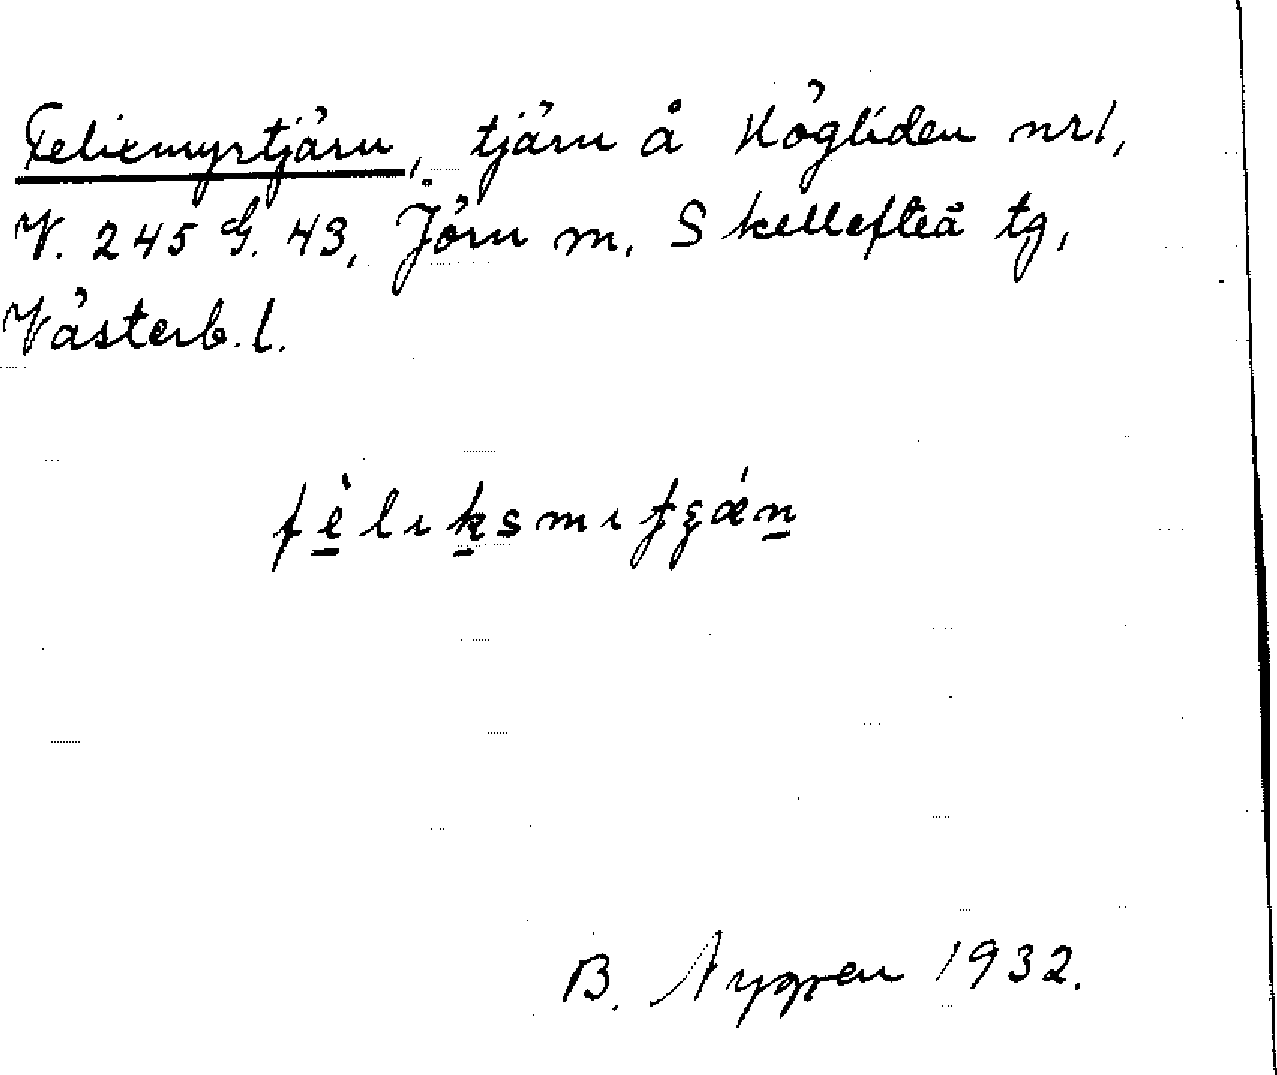 Felixmyrtjärn, tjärn å Högliden nr 1,
V. 245 G. 43, Jörn m. Skellefteå tg,
Västerb. l.
B. Nygren 1932.